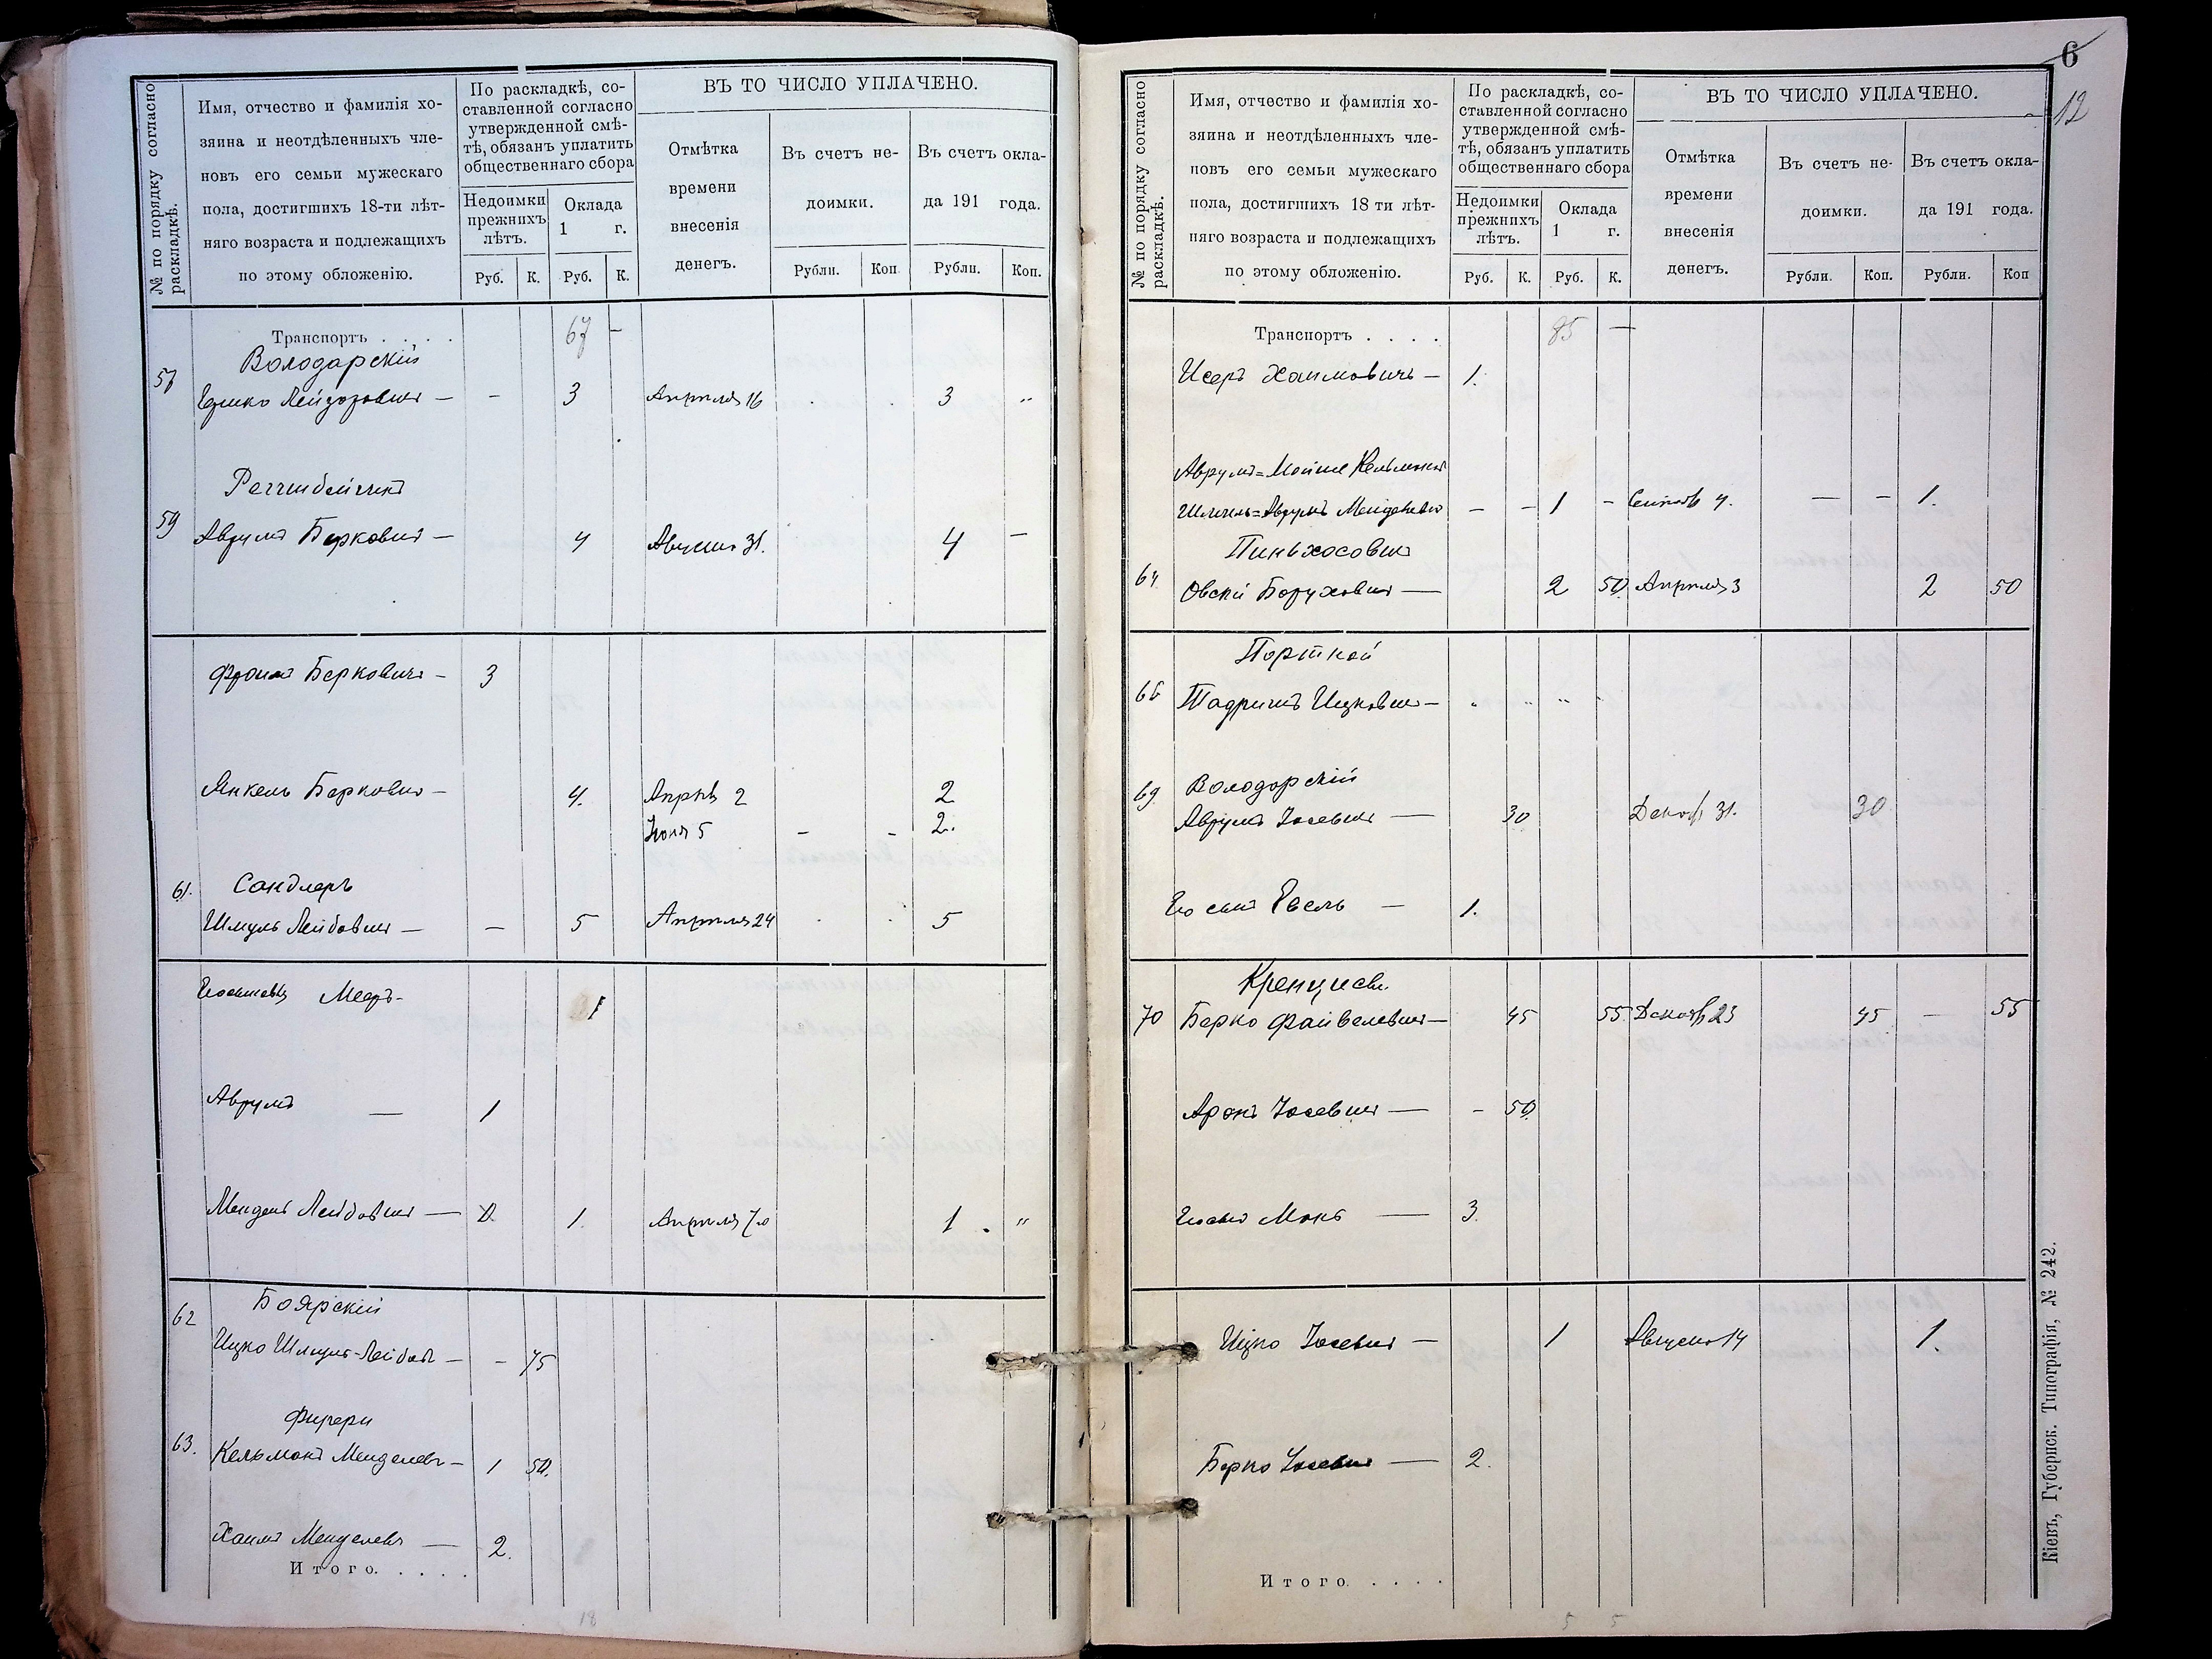 № по порядку согласно
раскладкѣ.
Имя, отчество и фамилія хо-
зяина и неотдѣленныхъ чле-
новъ его семьи мужескаго
пола, достигшихъ 18-ти лѣт-
няго возраста и подлежащихъ
по этому обложенію.
По раскладкѣ, со-
ставленной согласно
утвержденной смѣ-
тѣ, обязанъ уплатить
общественнаго сбора
Недоимки
прежнихъ
лѣтъ.
Оклада
1 г.
Руб. К. Руб. К.
ВЪ ТО ЧИСЛО УПЛАЧЕНО.
Отмѣтка
времени
внесенія
денегъ.
Въ счетъ не-
доимки.
Въ счетъ окла-
да 191 года.
Рубли. Коп Рубли. Коп.
Транспортъ . . . . 67 —
Володарскій
57 Лейзоровичъ — - 3 Апрѣля 16 3 "
59 Аврумъ Берковичъ — 4 Августа 31. 4 —
Фроимъ Берковичъ - 3
Янкель Берковичъ - 4. Апрѣля 2 2
Іюля 5 - - 2.
61. Сандлеръ
Шмуль Лейбовичъ — — 5 Апрѣля 24 5
Мееръ - 1
Аврумъ — 1
Мендель Лейбовичъ — 1. Апрѣля 1 . "
62 Боярскій
Ицко Шмуль-Лейбов — - 75
63. Кельманъ Менделев — 1 50.
Хаимъ Менделевъ — 2.
Итого. . . . .
18
6
12
№ по порядку согласно
раскладкѣ.
Имя, отчество и фамилія хо-
зяина и неотдѣленныхъ чле-
новъ его семьи мужескаго
пола, достигшихъ 18 ти лѣт-
няго возраста и подлежащихъ
по этому обложенію.
По раскладкѣ, со-
ставленной согласно
утвержденной смѣ-
тѣ, обязанъ уплатить
общественнаго сбора
Недоимки
прежнихъ
лѣтъ.
Оклада
1 г.
Руб. К. Руб. К.
ВЪ ТО ЧИСЛО УПЛАЧЕНО.
Отмѣтка
времени
внесенія
денегъ.
Въ счетъ не-
доимки.
Въ счетъ окла-
да 191 года.
Рубли. Коп. Рубли. Коп
Транспортъ . . . . 85 —
Исеръ Хаимовичъ — 1.
Аврумъ=Мойше
Аврумъ - - 1 - Сентяб 4. — - 1.
Пиньхосовичъ
64. Боруховичъ — 2 50 Апрѣля 3 2 50
Портной
Ицковичъ —
69. Володарскій
Аврумъ Іосевичъ — 30 Декаб 31. 30
— 1.
70 Берко Файвелевичъ — 45 55 Декаб 23 45 — 55
Аронъ Іосевичъ — - 50.
— 3.
Ицко Іосевичъ — 1 Августа 14 1.
Берко Іосевичъ — 2.
Итого. . . . .
5 5
Кіевъ, Губернск. Типографія, № 242.